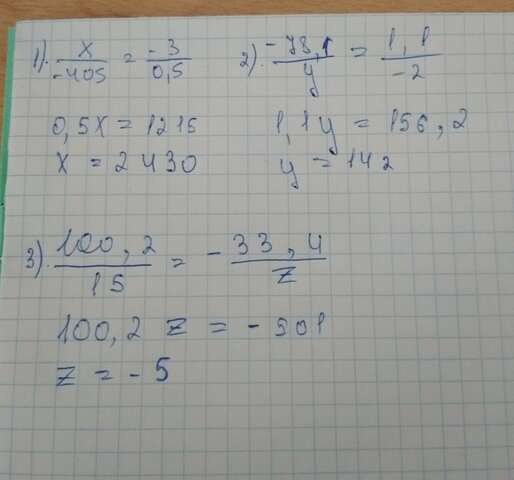 1). x/-405 = -3/0,5
0,5x = 1215
x = 2430
2). -78,1/y = 1,1/-2
1,1y = 156,2
y = 142
3). 100,2/15 = - 33,4/z
100,2 z = - 501
z = - 5